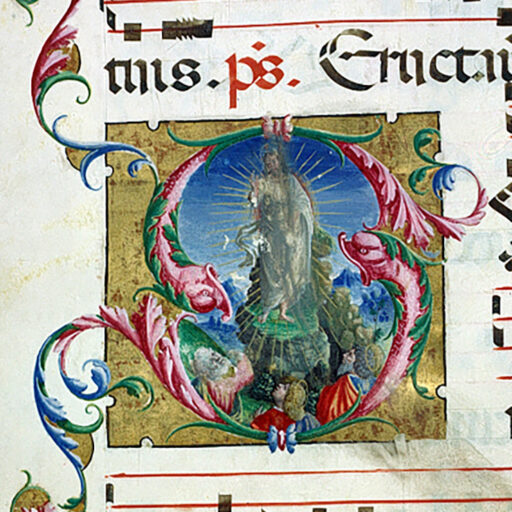 tuus. ps. Eructau